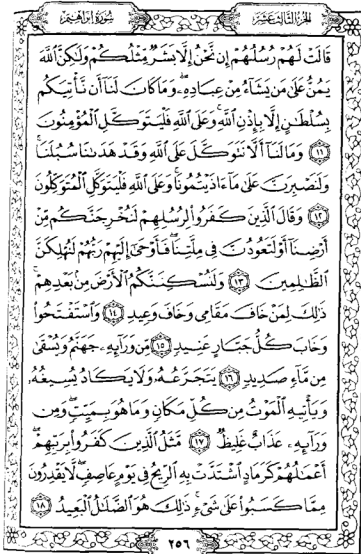 الجزء الثالث عشر
سورة إبراهيم
قَالَتْ لَهُمْ رُسُلُهُمْ إِن نَّحْنُ إِلَّا بَشَرٌ مِّثْلُكُمْ وَلَٰكِنَّ ٱللَّهَ
يَمُنُّ عَلَىٰ مَن يَشَآءُ مِنْ عِبَادِهِۦ ۖ وَمَا كَانَ لَنَآ أَن نَّأْتِيَكُم
بِسُلْطَٰنٍ إِلَّا بِإِذْنِ ٱللَّهِ ۚ وَعَلَى ٱللَّهِ فَلْيَتَوَكَّلِ ٱلْمُؤْمِنُونَ
۝١١ وَمَا لَنَآ أَلَّا نَتَوَكَّلَ عَلَى ٱللَّهِ وَقَدْ هَدَىٰنَا سُبُلَنَا ۚ
وَلَنَصْبِرَنَّ عَلَىٰ مَآ ءَاذَيْتُمُونَا ۚ وَعَلَى ٱللَّهِ فَلْيَتَوَكَّلِ ٱلْمُتَوَكِّلُونَ
۝١٢ وَقَالَ ٱلَّذِينَ كَفَرُوا۟ لِرُسُلِهِمْ لَنُخْرِجَنَّكُم مِّنْ
أَرْضِنَآ أَوْ لَتَعُودُنَّ فِى مِلَّتِنَا ۖ فَأَوْحَىٰٓ إِلَيْهِمْ رَبُّهُمْ لَنُهْلِكَنَّ
ٱلظَّٰلِمِينَ ۝١٣ وَلَنُسْكِنَنَّكُمُ ٱلْأَرْضَ مِنۢ بَعْدِهِمْ ۚ
ذَٰلِكَ لِمَنْ خَافَ مَقَامِى وَخَافَ وَعِيدِ ۝١٤ وَٱسْتَفْتَحُوا۟
وَخَابَ كُلُّ جَبَّارٍ عَنِيدٍ ۝١٥ مِّن وَرَآئِهِۦ جَهَنَّمُ وَيُسْقَىٰ
مِن مَّآءٍ صَدِيدٍ ۝١٦ يَتَجَرَّعُهُۥ وَلَا يَكَادُ يُسِيغُهُۥ
وَيَأْتِيهِ ٱلْمَوْتُ مِن كُلِّ مَكَانٍ وَمَا هُوَ بِمَيِّتٍ ۖ وَمِن
وَرَآئِهِۦ عَذَابٌ غَلِيظٌ ۝١٧ مَّثَلُ ٱلَّذِينَ كَفَرُوا۟ بِرَبِّهِمْ ۖ
أَعْمَٰلُهُمْ كَرَمَادٍ ٱشْتَدَّتْ بِهِ ٱلرِّيحُ فِى يَوْمٍ عَاصِفٍ ۖ لَّا يَقْدِرُونَ
مِمَّا كَسَبُوا۟ عَلَىٰ شَىْءٍ ۚ ذَٰلِكَ هُوَ ٱلضَّلَٰلُ ٱلْبَعِيدُ ۝١٨
٢٥٦